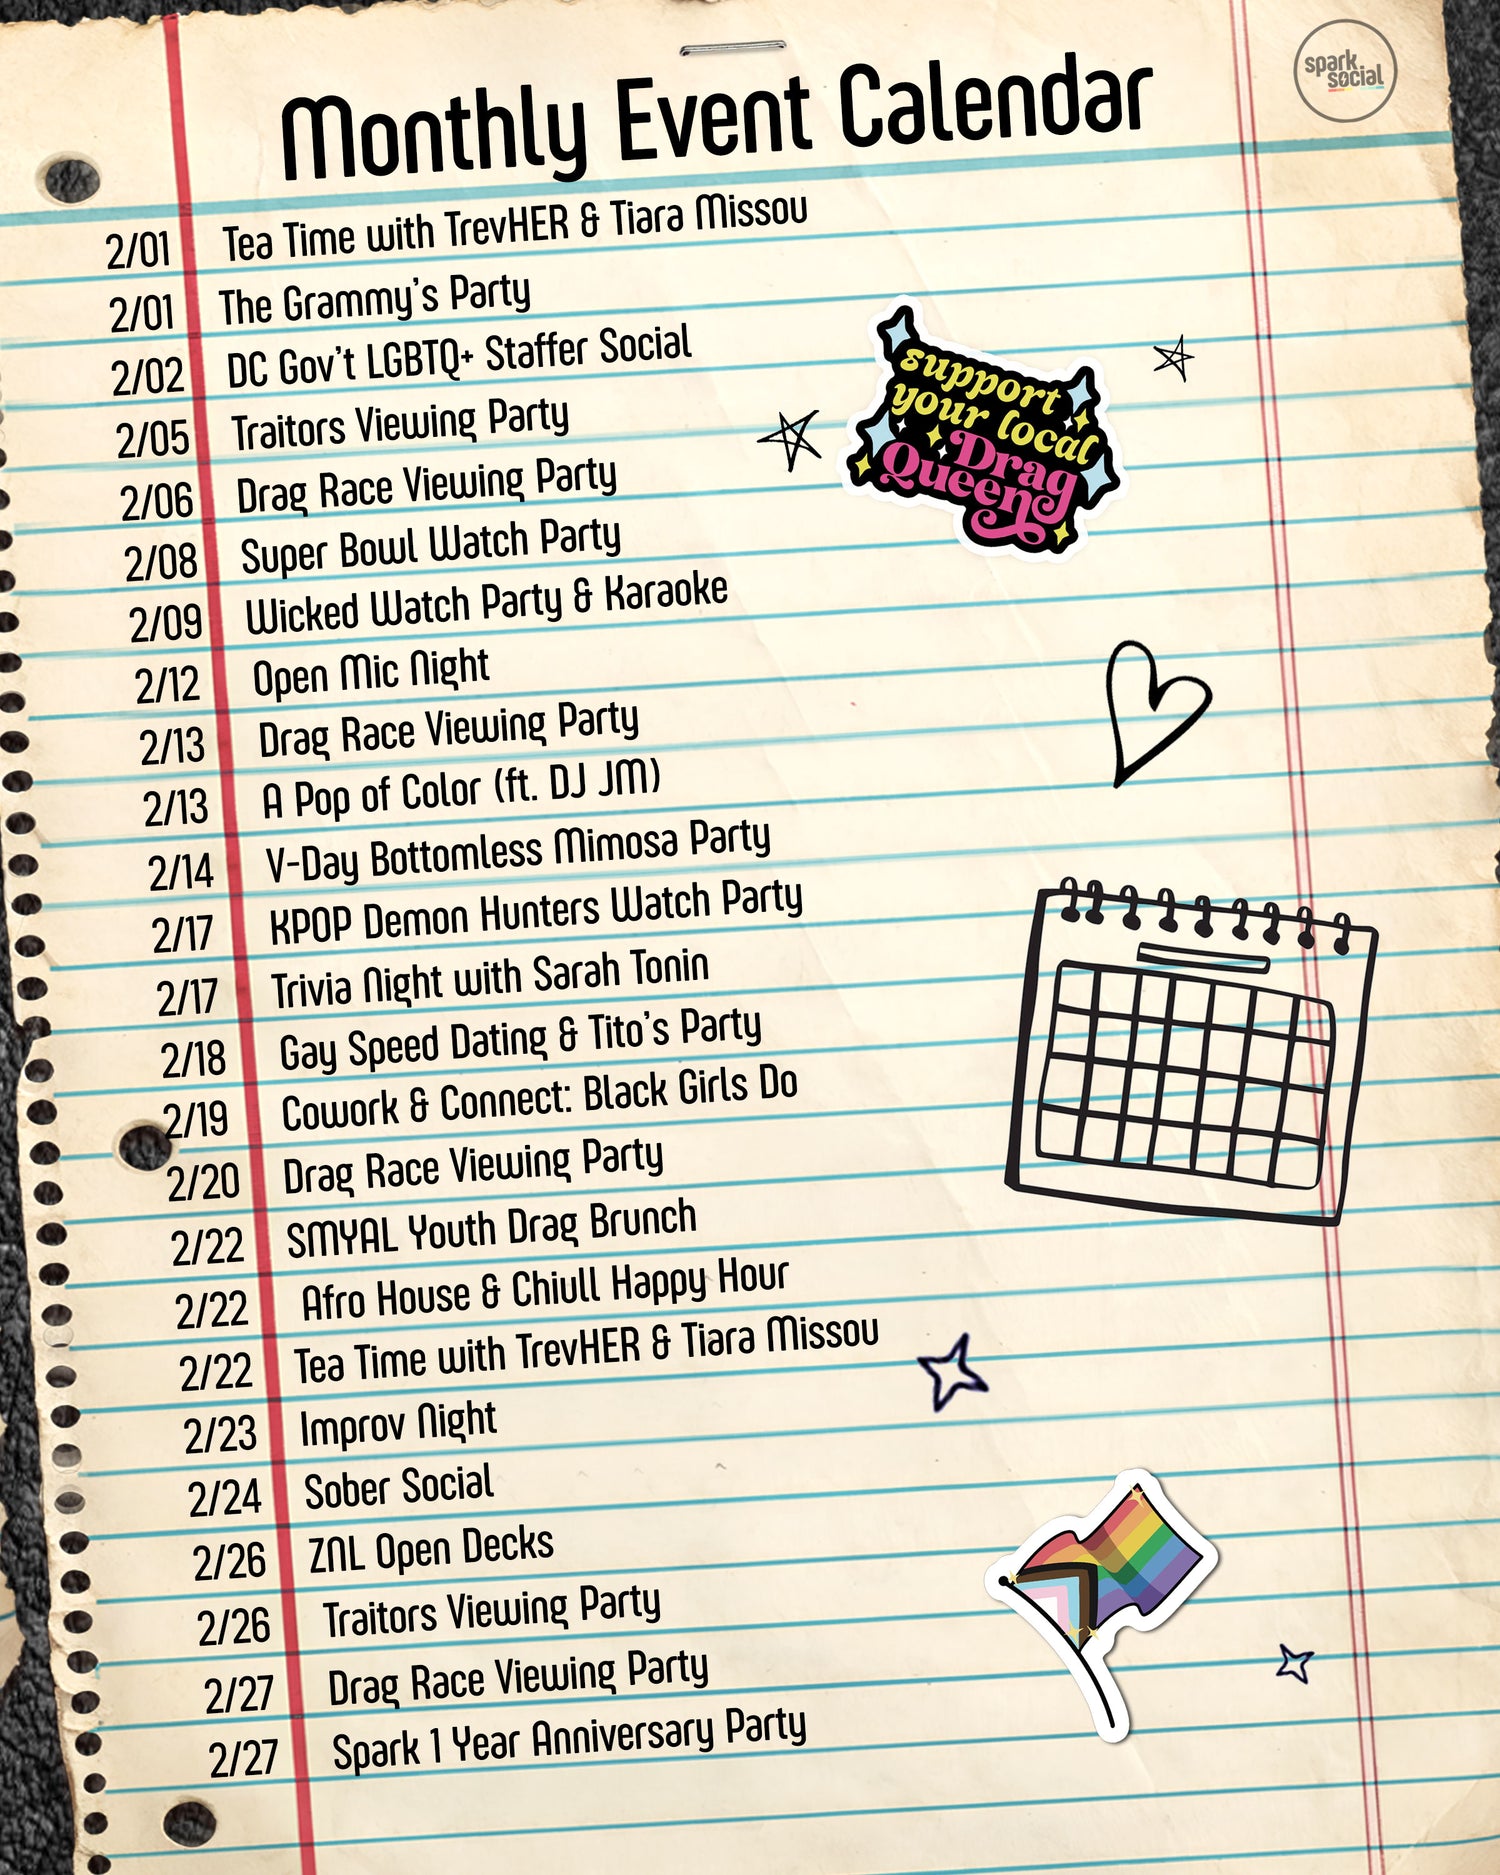 spark
social
Monthly Event Calendar
2/01 Tea Time with TrevHER & Tiara Missou
2/01 The Grammy's Party
2/02 DC Gov't LGBTQ+ Staffer Social
2/05 Traitors Viewing Party
2/06 Drag Race Viewing Party
2/08 Super Bowl Watch Party
2/09 Wicked Watch Party & Karaoke
2/12 Open Mic Night
2/13 Drag Race Viewing Party
2/13 A Pop of Color (ft. DJ JM)
2/14 V-Day Bottomless Mimosa Party
2/17 KPOP Demon Hunters Watch Party
2/17 Trivia Night with Sarah Tonin
2/18 Gay Speed Dating & Tito's Party
2/19 Cowork & Connect: Black Girls Do
2/20 Drag Race Viewing Party
2/22 SMYAL Youth Drag Brunch
2/22 Afro House & Chiull Happy Hour
2/22 Tea Time with TrevHER & Tiara Missou
2/23 Improv Night
2/24 Sober Social
2/26 ZNL Open Decks
2/26 Traitors Viewing Party
2/27 Drag Race Viewing Party
2/27 Spark 1 Year Anniversary Party
support
your local
Drag
Queen